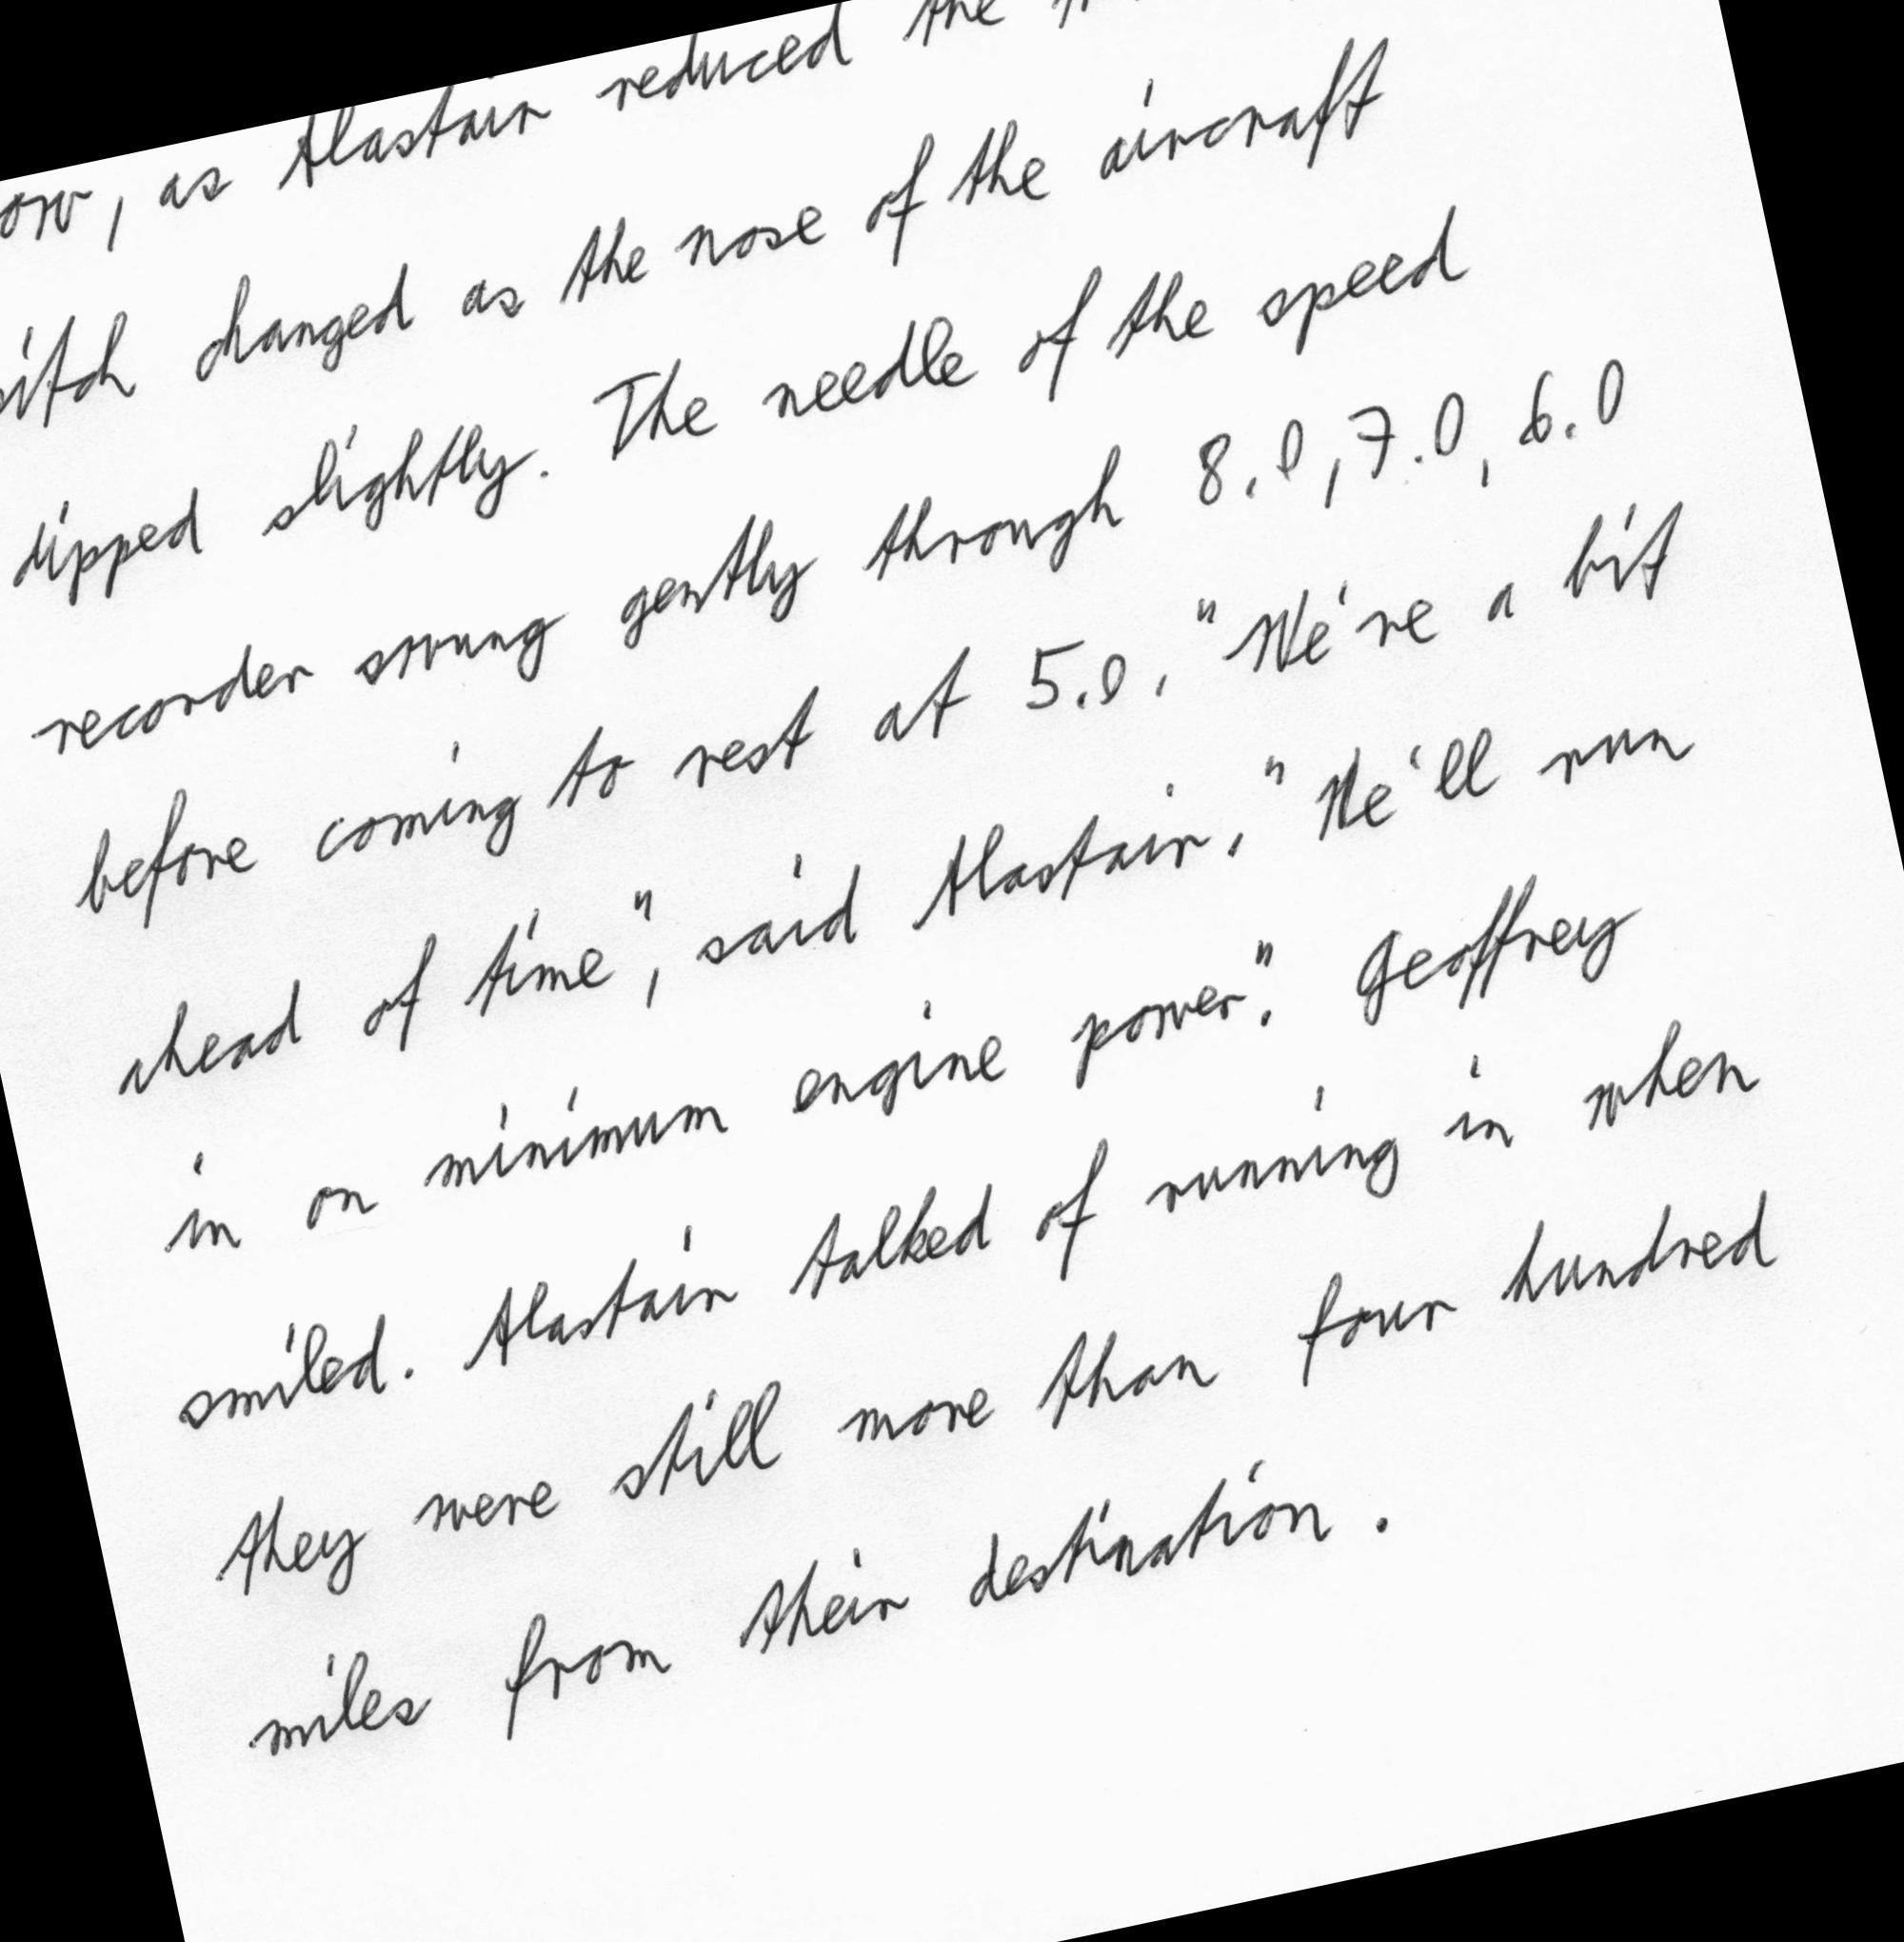 as Alastair reduced the
changed as the nose of the aircraft
dipped slightly. The needle of the speed
recorder swung gently through 8.0, 7.0, 6.0
before coming to rest at 5.0. "We're a bit
ahead of time", said Alastair. "We'll run
in on minimum engine power." Geoffrey
smiled. Alastair talked of running in when
they were still more than four hundred
miles from their destination.